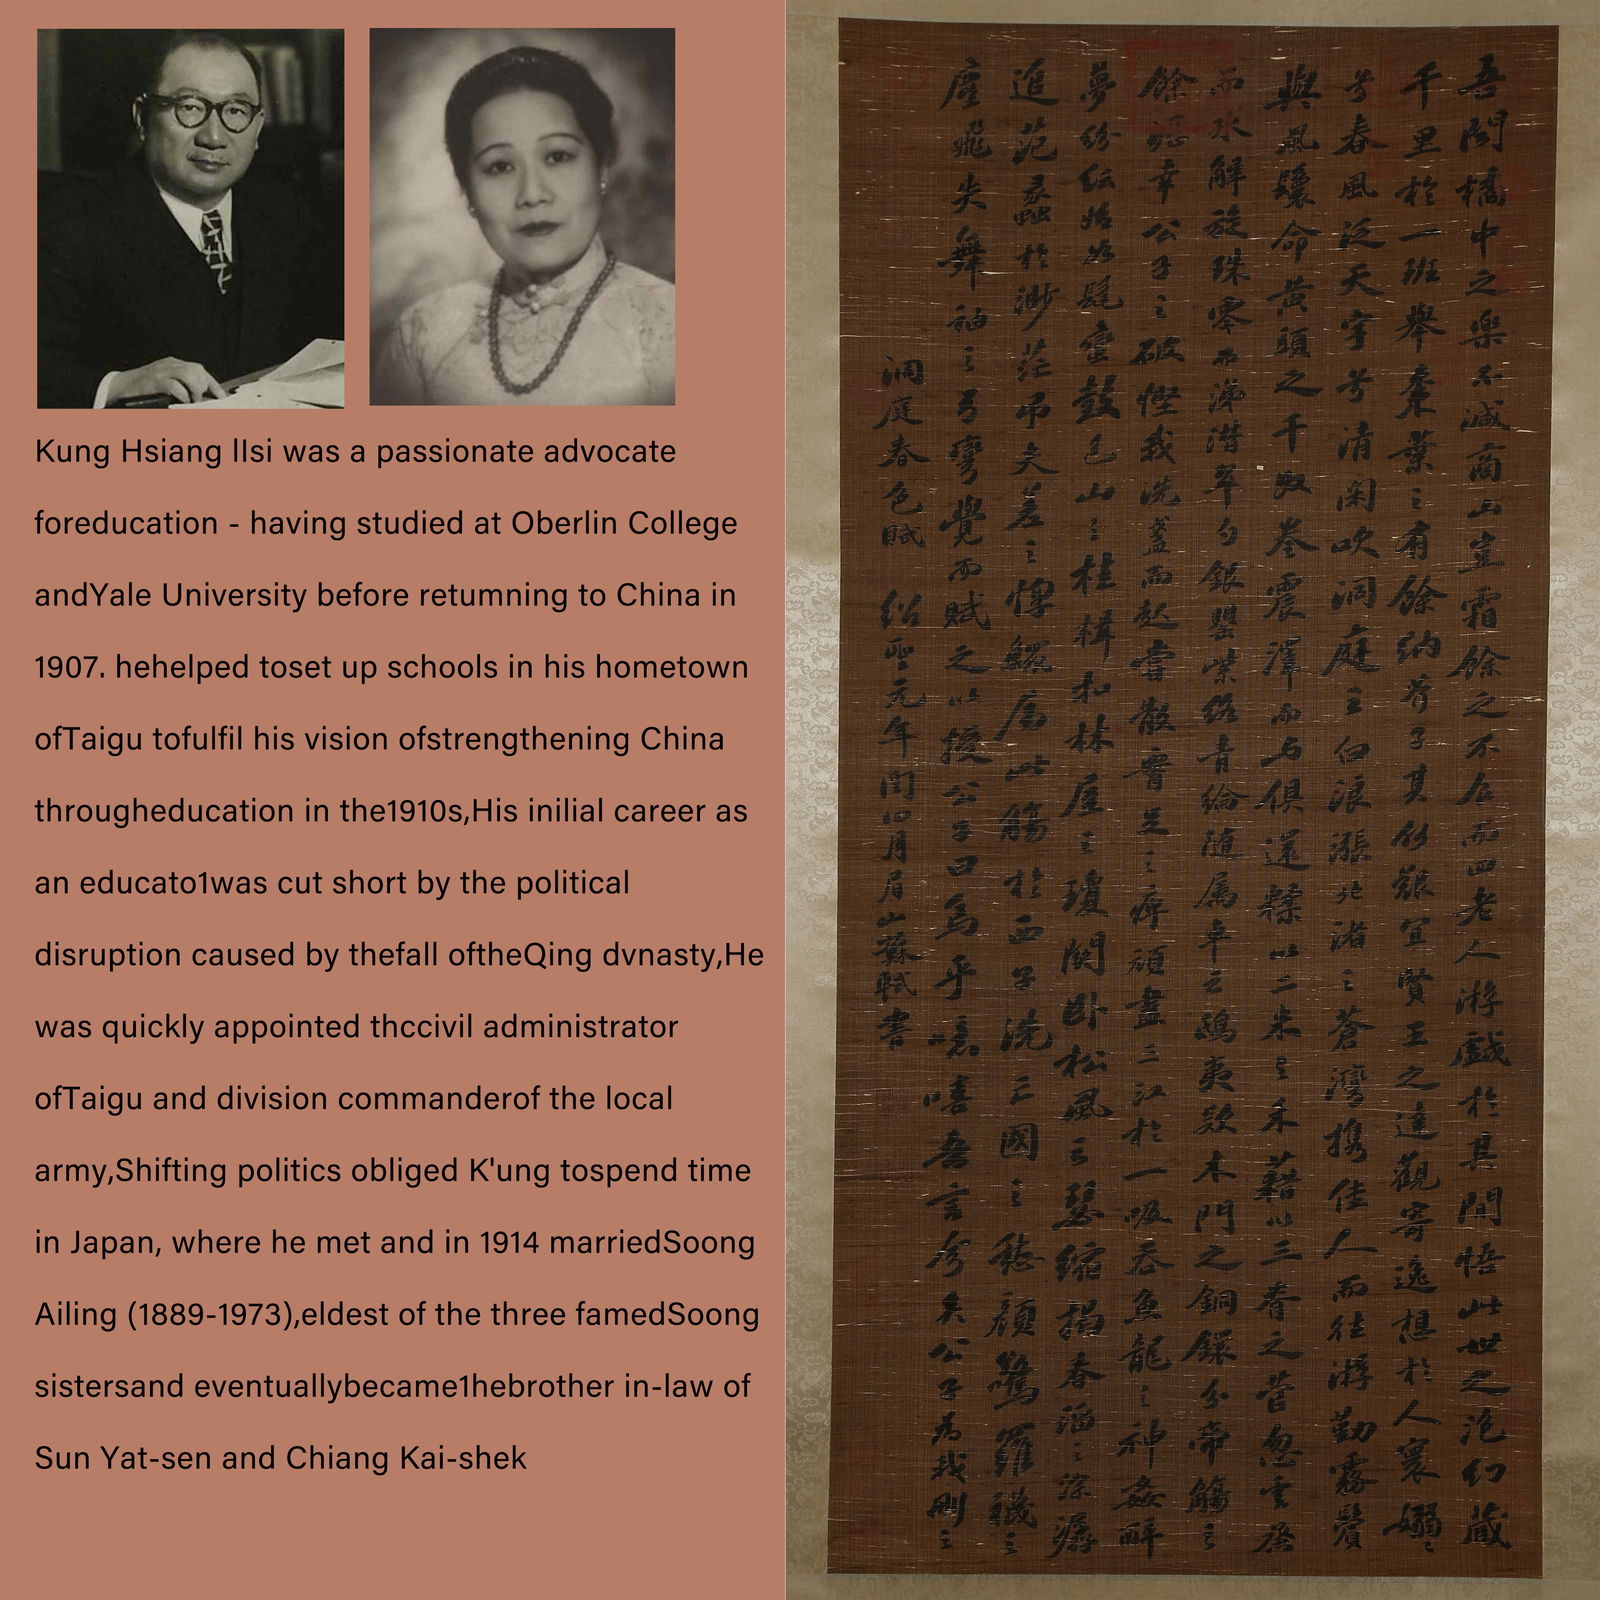 Kung Hsiang lIsi was a passionate advocate
foreducation - having studied at Oberlin College
andYale University before retumning to China in
1907. hehelped toset up schools in his hometown
ofTaigu tofulfil his vision ofstrengthening China
througheducation in the1910s,His inilial career as
an educato1was cut short by the political
disruption caused by thefall oftheQing dvnasty,He
was quickly appointed thccivil administrator
ofTaigu and division commanderof the local
army,Shifting politics obliged K'ung tospend time
in Japan, where he met and in 1914 marriedSoong
Ailing (1889-1973),eldest of the three famedSoong
sistersand eventuallybecame1hebrother in-law of
Sun Yat-sen and Chiang Kai-shek
吾聞橘中之樂不減商山豈霜餘之不食而四老人游戲於其間悟此世之泡幻藏
千里於一班舉棗葉之有餘納芥子其何艱宜賢王之達觀寄逸想於人寰嫋〻
兮春風泛天宇兮清閑吹洞庭之白浪漲北渚之蒼灣攜佳人而往游勤霧鬢
與風鬟命黃頭之千奴卷震澤而与俱還糅以二米之禾藉以三脊之菅忽雲烝
而冰解旋珠零而涕潸翠勺銀罌紫絡青綸隨属車之鴟夷款木門之銅鐶分帝觴之
餘瀝幸公子之破慳我洗盞而起嘗散腰足之痺頑盡三江於一吸吞魚龍之神姦醉
夢紛紜始如髦蠻鼓包山之桂楫扣林屋之瓊關臥松風之瑟縮揭春溜之淙潺
追范蠡於渺茫吊夫差之惸鰥屬此觴於西子洗亡國之愁顏驚羅襪之
塵飛失舞袖之弓彎覺而賦之以授公子曰烏乎噫嘻吾言夸矣公子為我刪之
洞庭春色賦 紹聖元年閏四月眉山蘇軾書